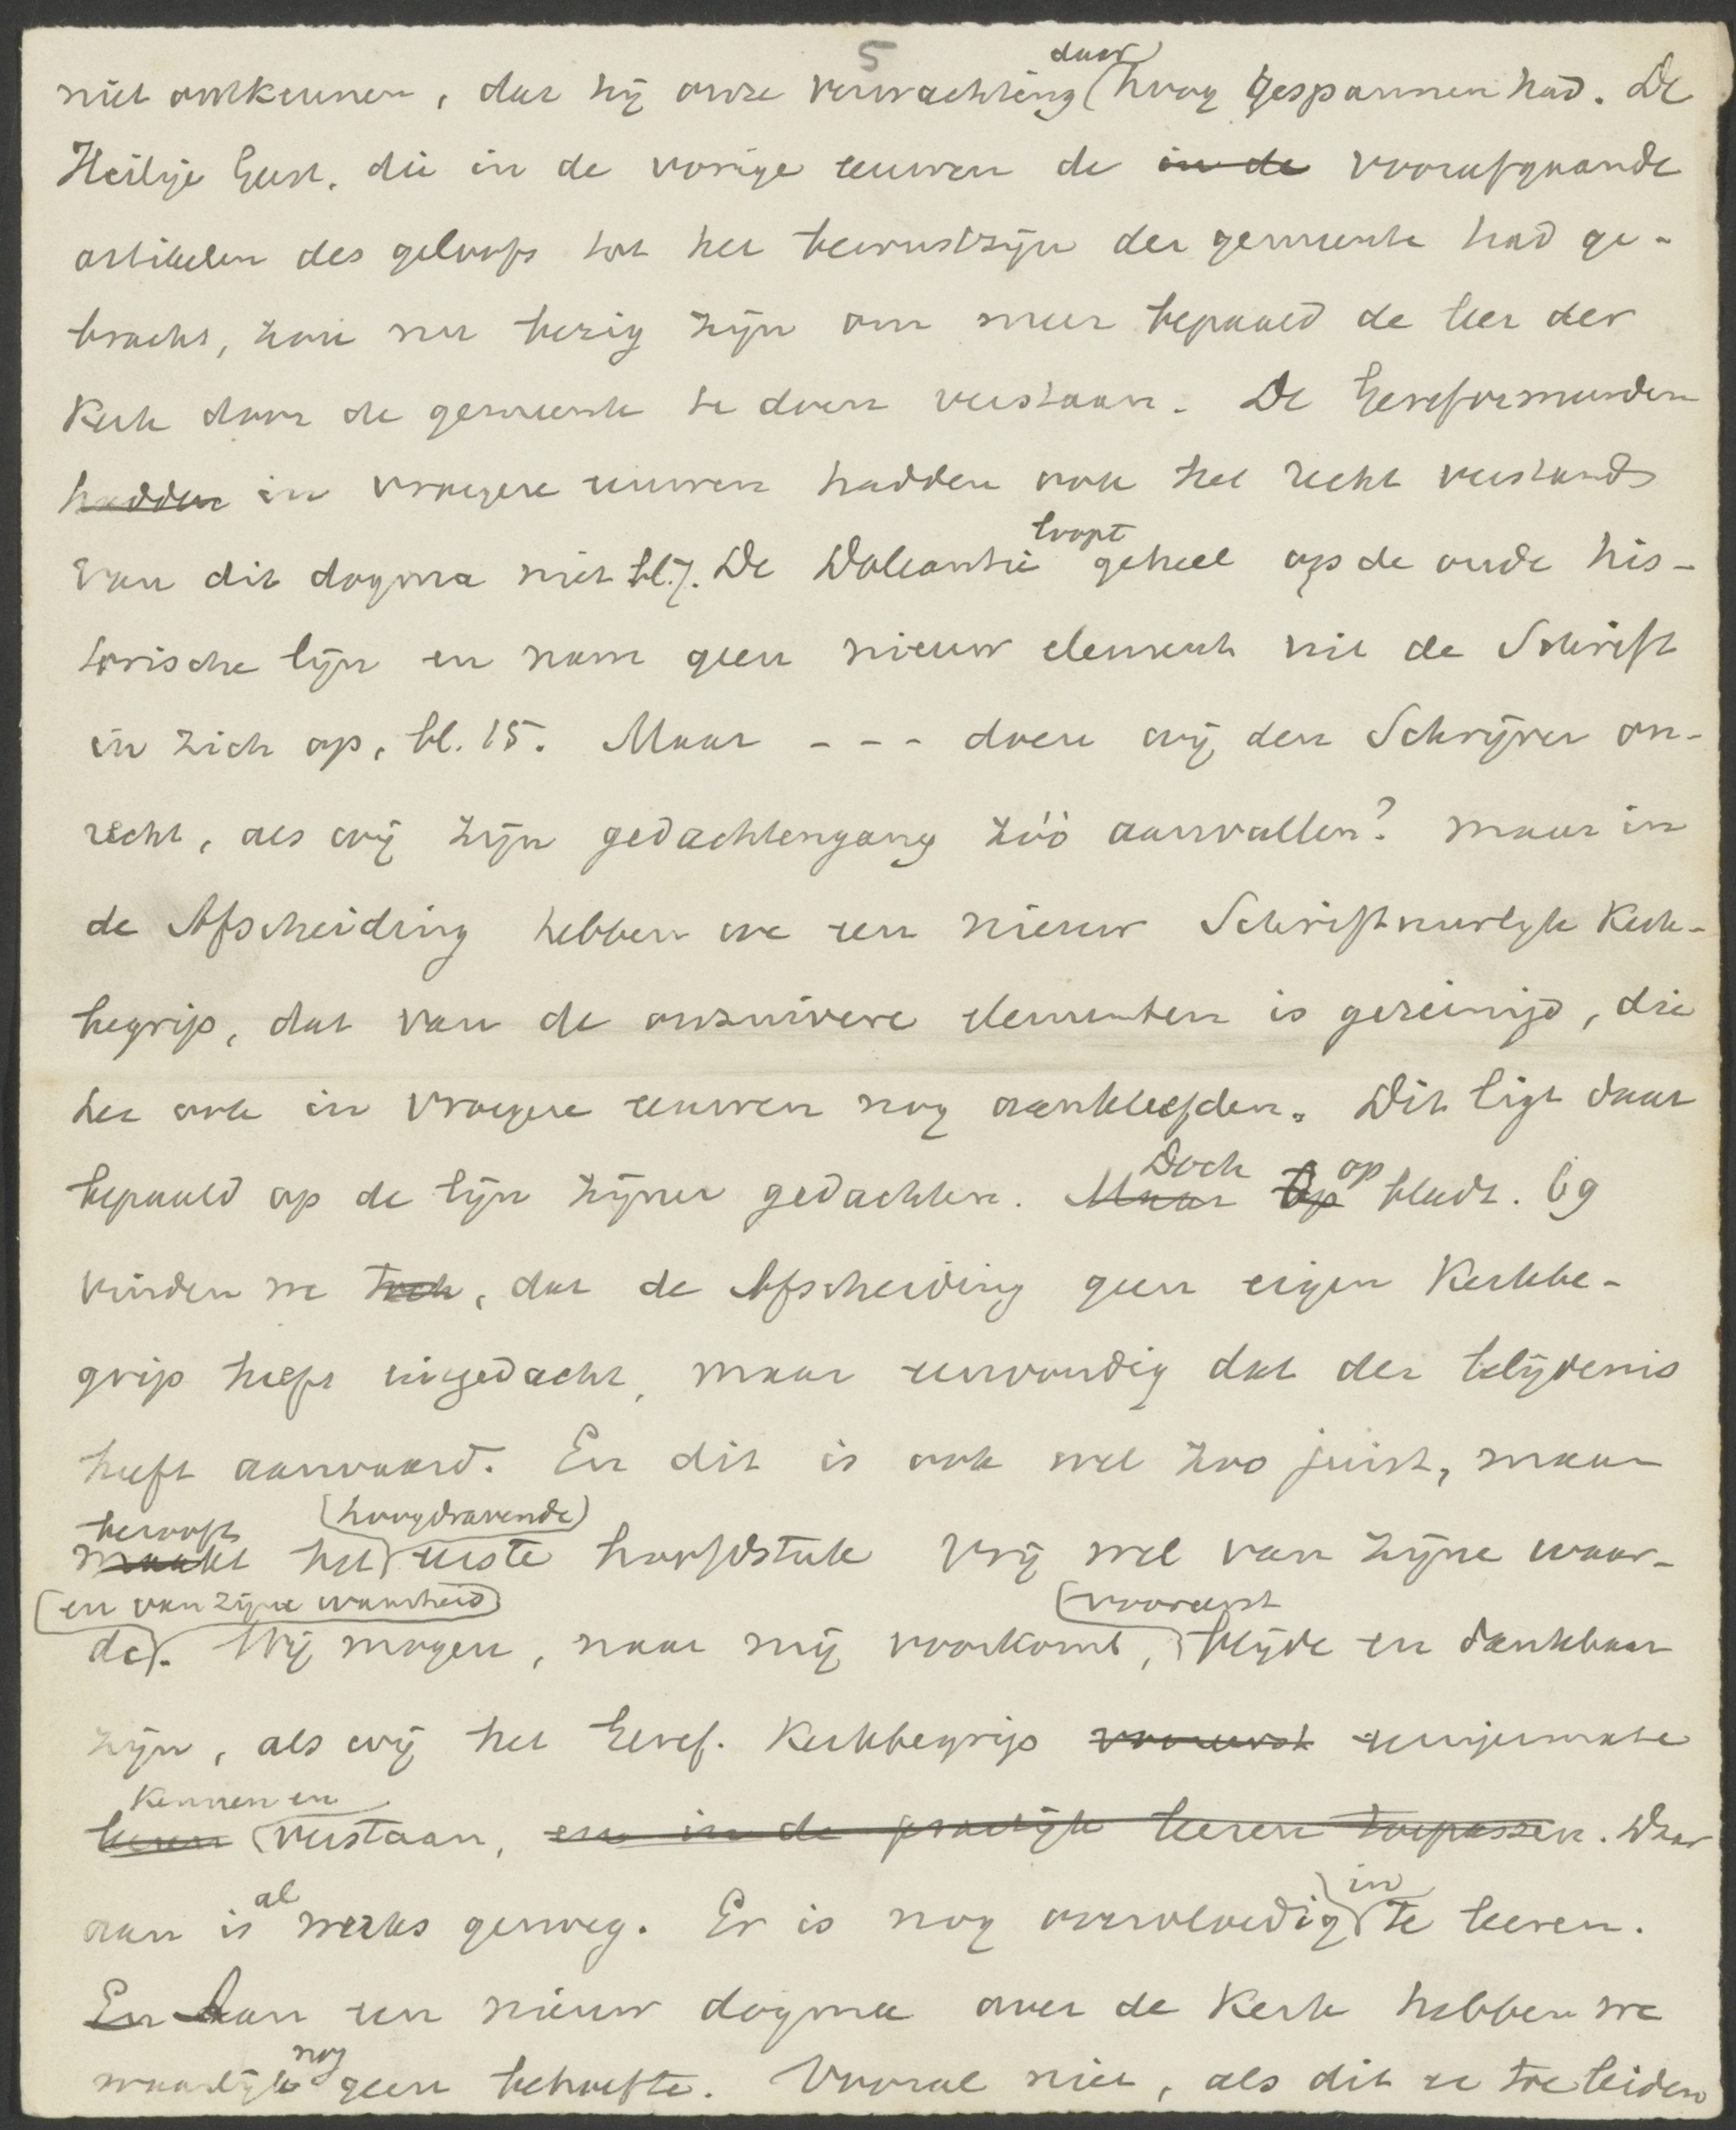 5
niet ontkennen, dat hij onze verwachting daar hoog gespannen had. De
Heilige Geest, die in de vorige eeuwen de in de voorafgaande
artikelen des geloofs tot het bewustzijn der gemeente had ge-
bracht, zou nu bezig zijn om meer bepaald de leer der
Kerk door de gemeente te doen verstaan. De Gereformeerden
hadden in vroegere eeuwen hadden ook het recht verstand
van dit dogma niet bl. 7. De Doleantie loopt geheel op de oude his-
torische lijn en nam geen nieuw element uit de Schrift
in zich op, bl. 15. Maar - - - doen wij den Schrijver on-
recht, als wij zijn gedachtengang zóó aanvullen? maar in
de Afscheiding hebben we een nieuw Schriftuurlijk Kerk-
begrip, dat van de onzuivere elementen is gereinigd, die
het ook in vroegere eeuwen nog aankleefden. Dit ligt daar
bepaald op de lijn zijner gedachten. Maar Doch Op op bladz. 69
vinden we toch, dat de Afscheiding geen eigen Kerkbe-
grip heeft ingedacht, maar eenvoudig dat der belijdenis
heeft aanvaard. En dit is ook wel zoo juist, maar
berooft (hoogdravende)
maakt het eerste hoofdstuk vrij wel van zijne waar-
(en van zijne waarheid) (vooreerst
de. Wij mogen, naar mij voorkomt, blijde en dankbaar
zijn, als wij het Geref. Kerkbegrip vooreerst eenigermate
Kennen en
leeren verstaan, en in de practijk leeren toepassen. Daar
aan is al werks genoeg. Er is nog overvloedig in te leeren.
En Aan een nieuw dogma over de Kerk hebben we
waarlijk nog geen behoefte. Vooral niet, als dit er toe leiden